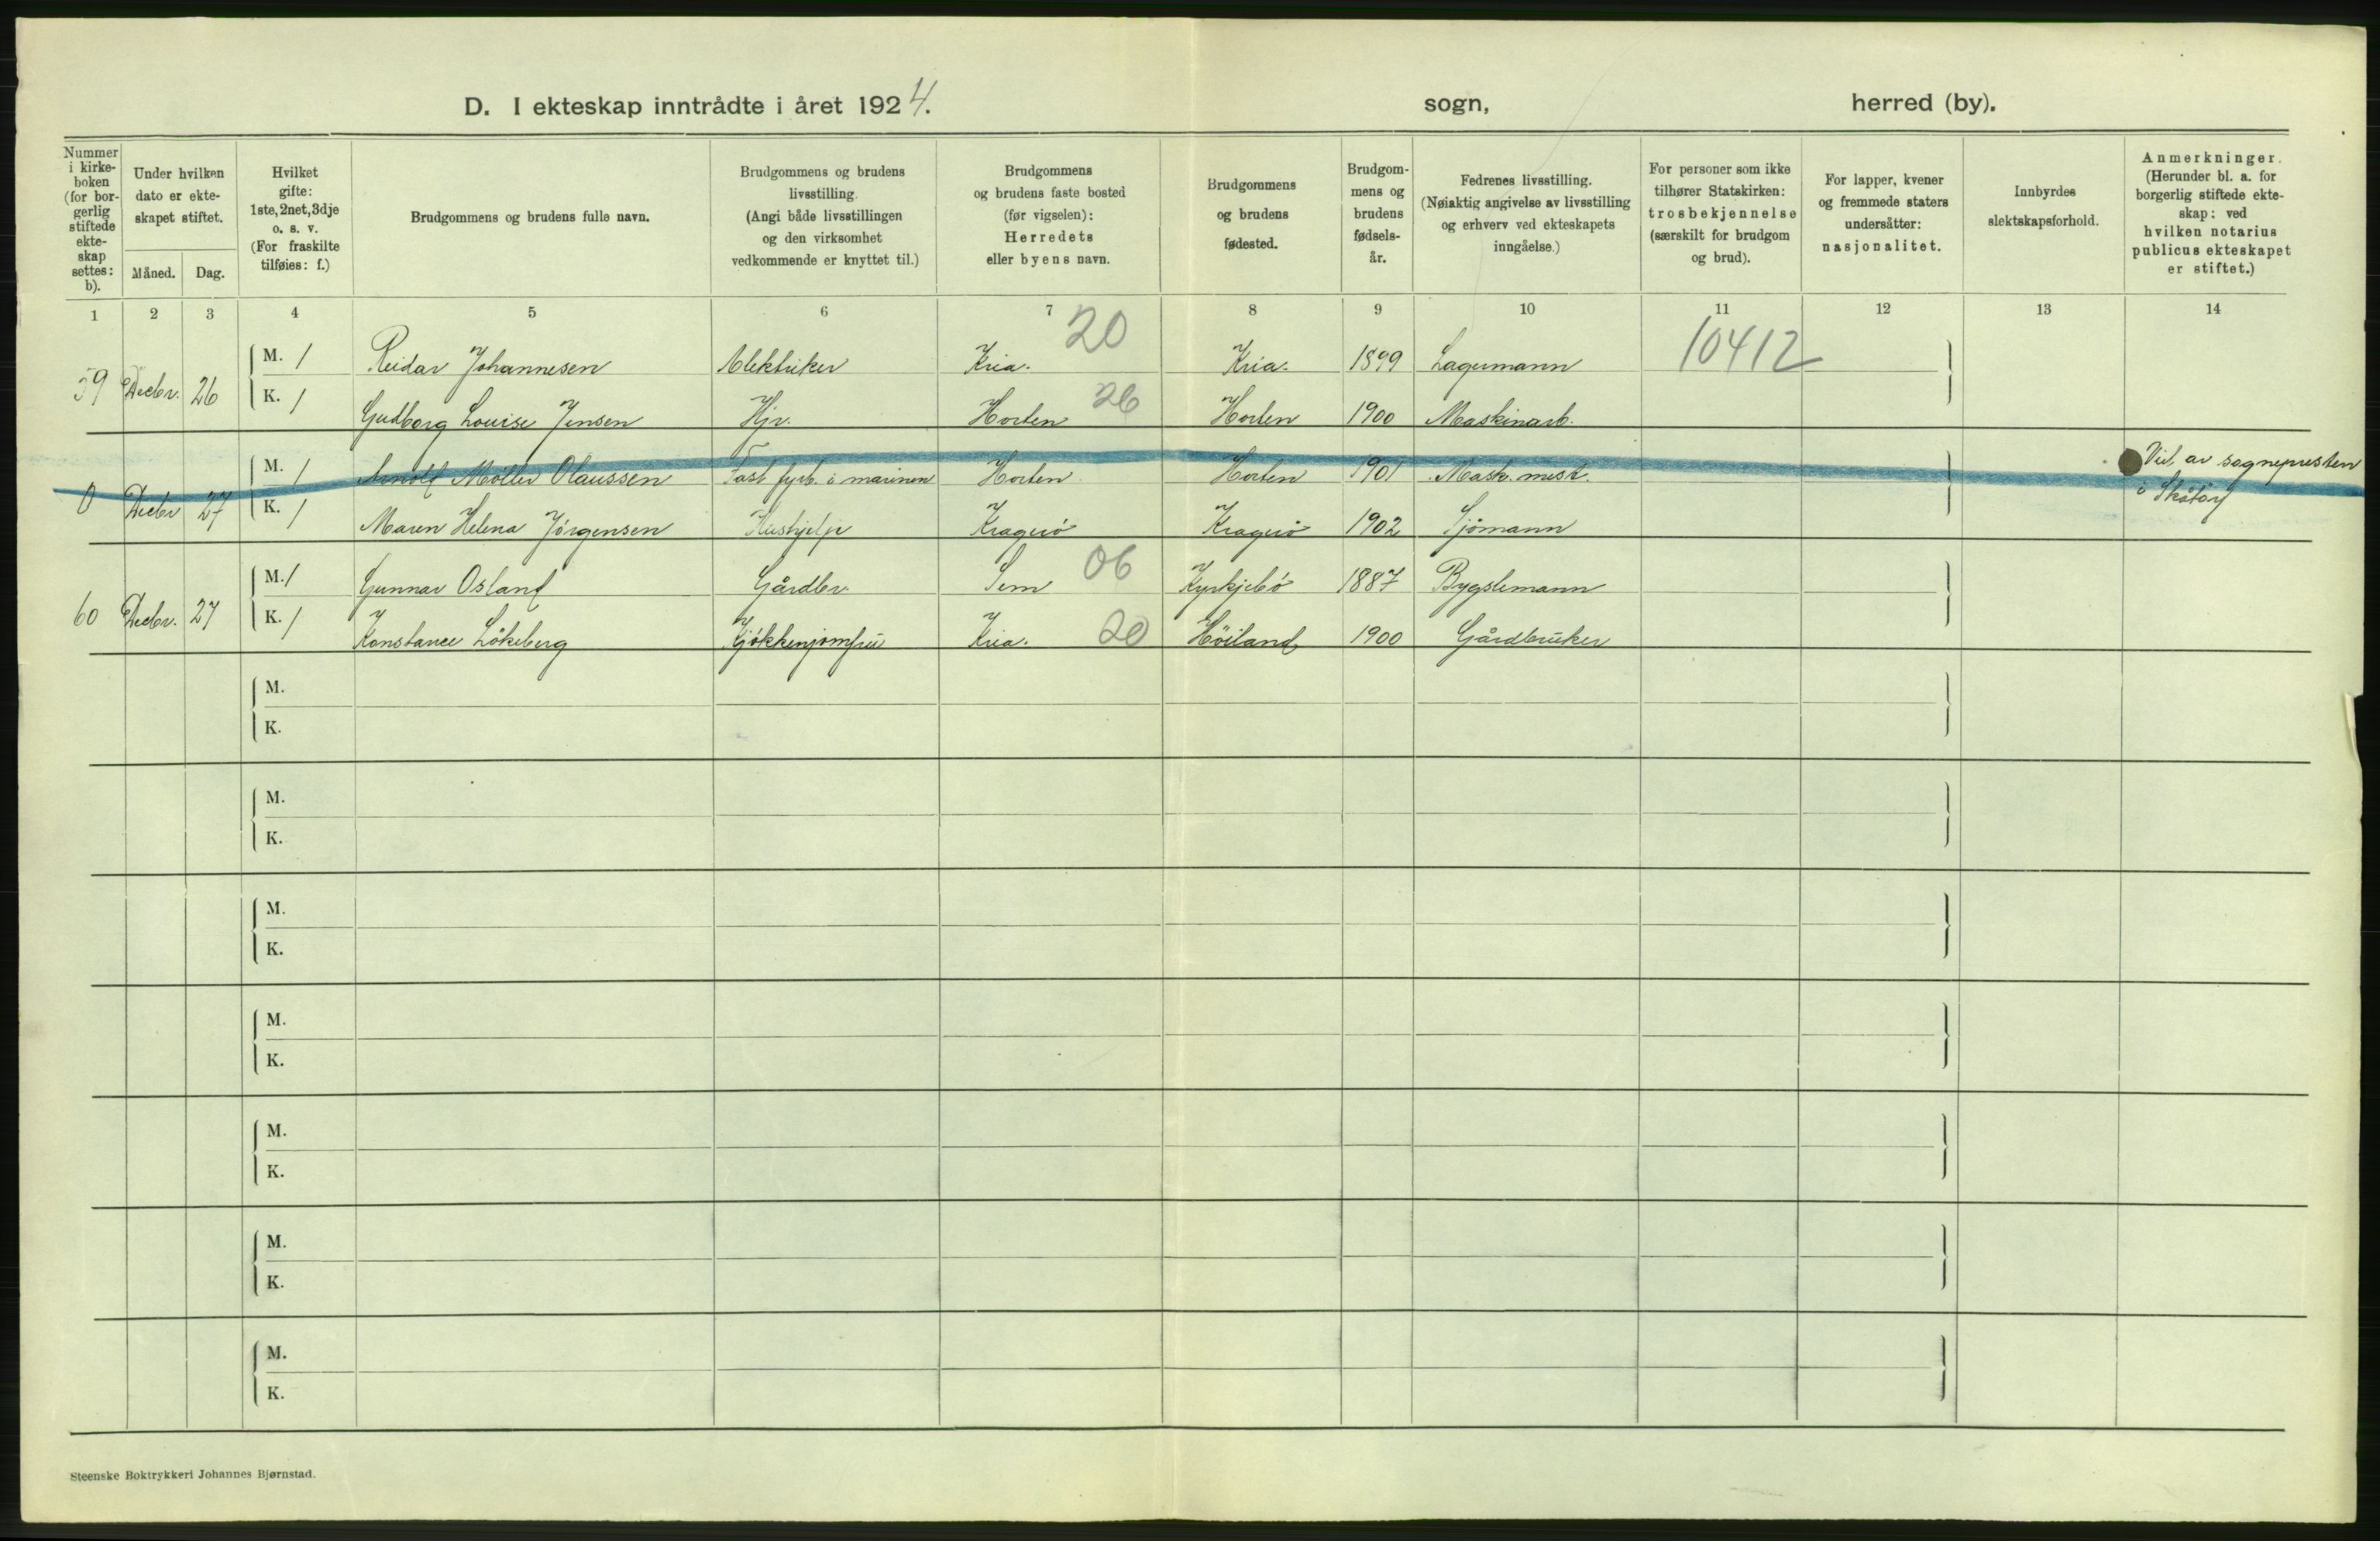 D. I ekteskap inntrådte i året 1924. sogn, herred (by).
Nummer i kirkeboken (for borgerlig stiftede ekteskap settes: b).
Under hvilken dato er ekteskapet stiftet.
Måned. Dag.
Hvilket gifte: 1ste, 2net, 3dje o. s. v. (For fraskilte tilføies: f.)
Brudgommens og brudens fulle navn.
Brudgommens og brudens livsstilling. (Angi både livsstillingen og den virksomhet vedkommende er knyttet til.)
Brudgommens og brudens faste bosted (før vigselen): Herredets eller byens navn.
Brudgommens og brudens fødested.
Brudgommens og brudens fødselsår.
Fedrenes livsstilling. (Nøiaktig angivelse av livsstilling og erhverv ved ekteskapets inngåelse.)
For personer som ikke tilhører Statskirken: trosbekjennelse (særskilt for brudgom og brud).
For lapper, kvener og fremmede staters undersåtter: nasjonalitet.
Innbyrdes slektskapsforhold.
Anmerkninger. (Herunder bl. a. for borgerlig stiftede ekteskap: ved hvilken notarius publicus ekteskapet er stiftet.)
1 2 3 4 5 6 7 8 9 10 11 12 13 14
20 10412
M. 1 Reidar Johannesen Elektriker Kria. Kria. 1899 Lagermann
59 Decbr. 26
K. 1 Gudborg Louise Jensen Hjv. Horten 26 Horten 1900 Maskinarb.
M. 1 Arnolf Møller Olaussen Fast fyrb. i marinen Horten Horten 1901 Mask. mest. Viet av sognepresten
0 Decbr 27 i Skåtøy
K. 1 Maren Helena Jörgensen Hushjelp Kragerö Kragerö 1902 Sjömann
M. 1 Gunnar Osland Gårdbr. Sem 06 Kyrkjebö 1887 Bygslemann
60 Decbr. 27
K. 1 Konstance Lökeberg Kjökkenjomfru Kria. 20 Höiland 1900 Gårdbruker
M.
K.
M.
K.
M.
K.
M.
K.
M.
K.
M.
K.
M.
K.
Steenske Boktrykkeri Johannes Bjørnstad.